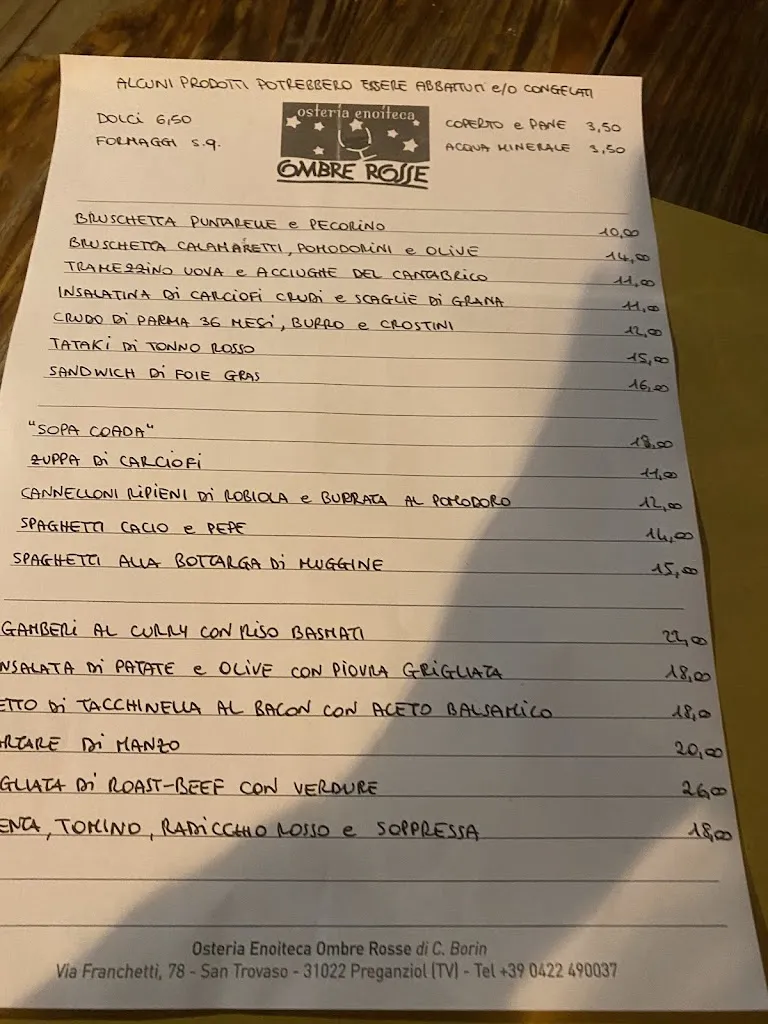 ALCUNI PRODOTTI POTREBBERO ESSERE ABBATTUTI e/o CONGELATI
DOLCI 6,50
FORMAGGI s.q.
osteria enoiteca
OMBRE ROSSE
COPERTO e PANE 3,50
ACQUA MINERALE 3,50
BRUSCHETTA PUNTARELLE e PECORINO 10,00
BRUSCHETTA CALAMARETTI, POMODORINI e OLIVE 14,00
TRAMEZZINO UOVA e ACCIUGHE DEL CANTABRICO 11,00
INSALATINA Di CARCIOFI CRUDI e SCAGLIE Di GRANA 11,00
CRUDO Di PARMA 36 MESI, BURRO e CROSTINI 12,00
TATAKI Di TONNO ROSSO 15,00
SANDWICH Di FOIE GRAS 16,00
"SOPA COADA" 18,00
ZUPPA Di CARCIOFI 11,00
CANNELLONI RIPIENI Di ROBIOLA e BURRATA AL POMODORO 12,00
SPAGHETTI CACIO e PEPE 14,00
SPAGHETTI ALLA BOTTARGA Di MUGGINE 15,00
GAMBERI AL CURRY CON RISO BASMATI 22,00
NSALATA Di PATATE e OLIVE CON PIOVRA GRIGLIATA 18,00
ETTO Di TACCHINELLA AL BACON CON ACETO BALSAMICO 18,0
RTARE Di MANZO 20,00
GLIATA Di ROAST-BEEF CON VERDURE 26,00
ENTA, TOMINO, RADICCHIO ROSSO e SOPPRESSA 18,00
Osteria Enoiteca Ombre Rosse di C. Borin
Via Franchetti, 78 - San Trovaso - 31022 Preganziol (TV) - Tel +39 0422 490037